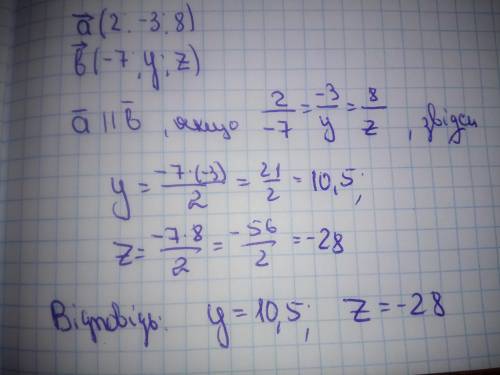 a⃗(2; -3; 8)
b⃗(-7; y; z)
a̅ || b̅, якщо 2/-7 = -3/y = 8/z, звідси
y = -7·(-3)/2 = 21/2 = 10,5;
z = -7·8/2 = -56/2 = -28
Відповідь: y = 10,5; z = -28